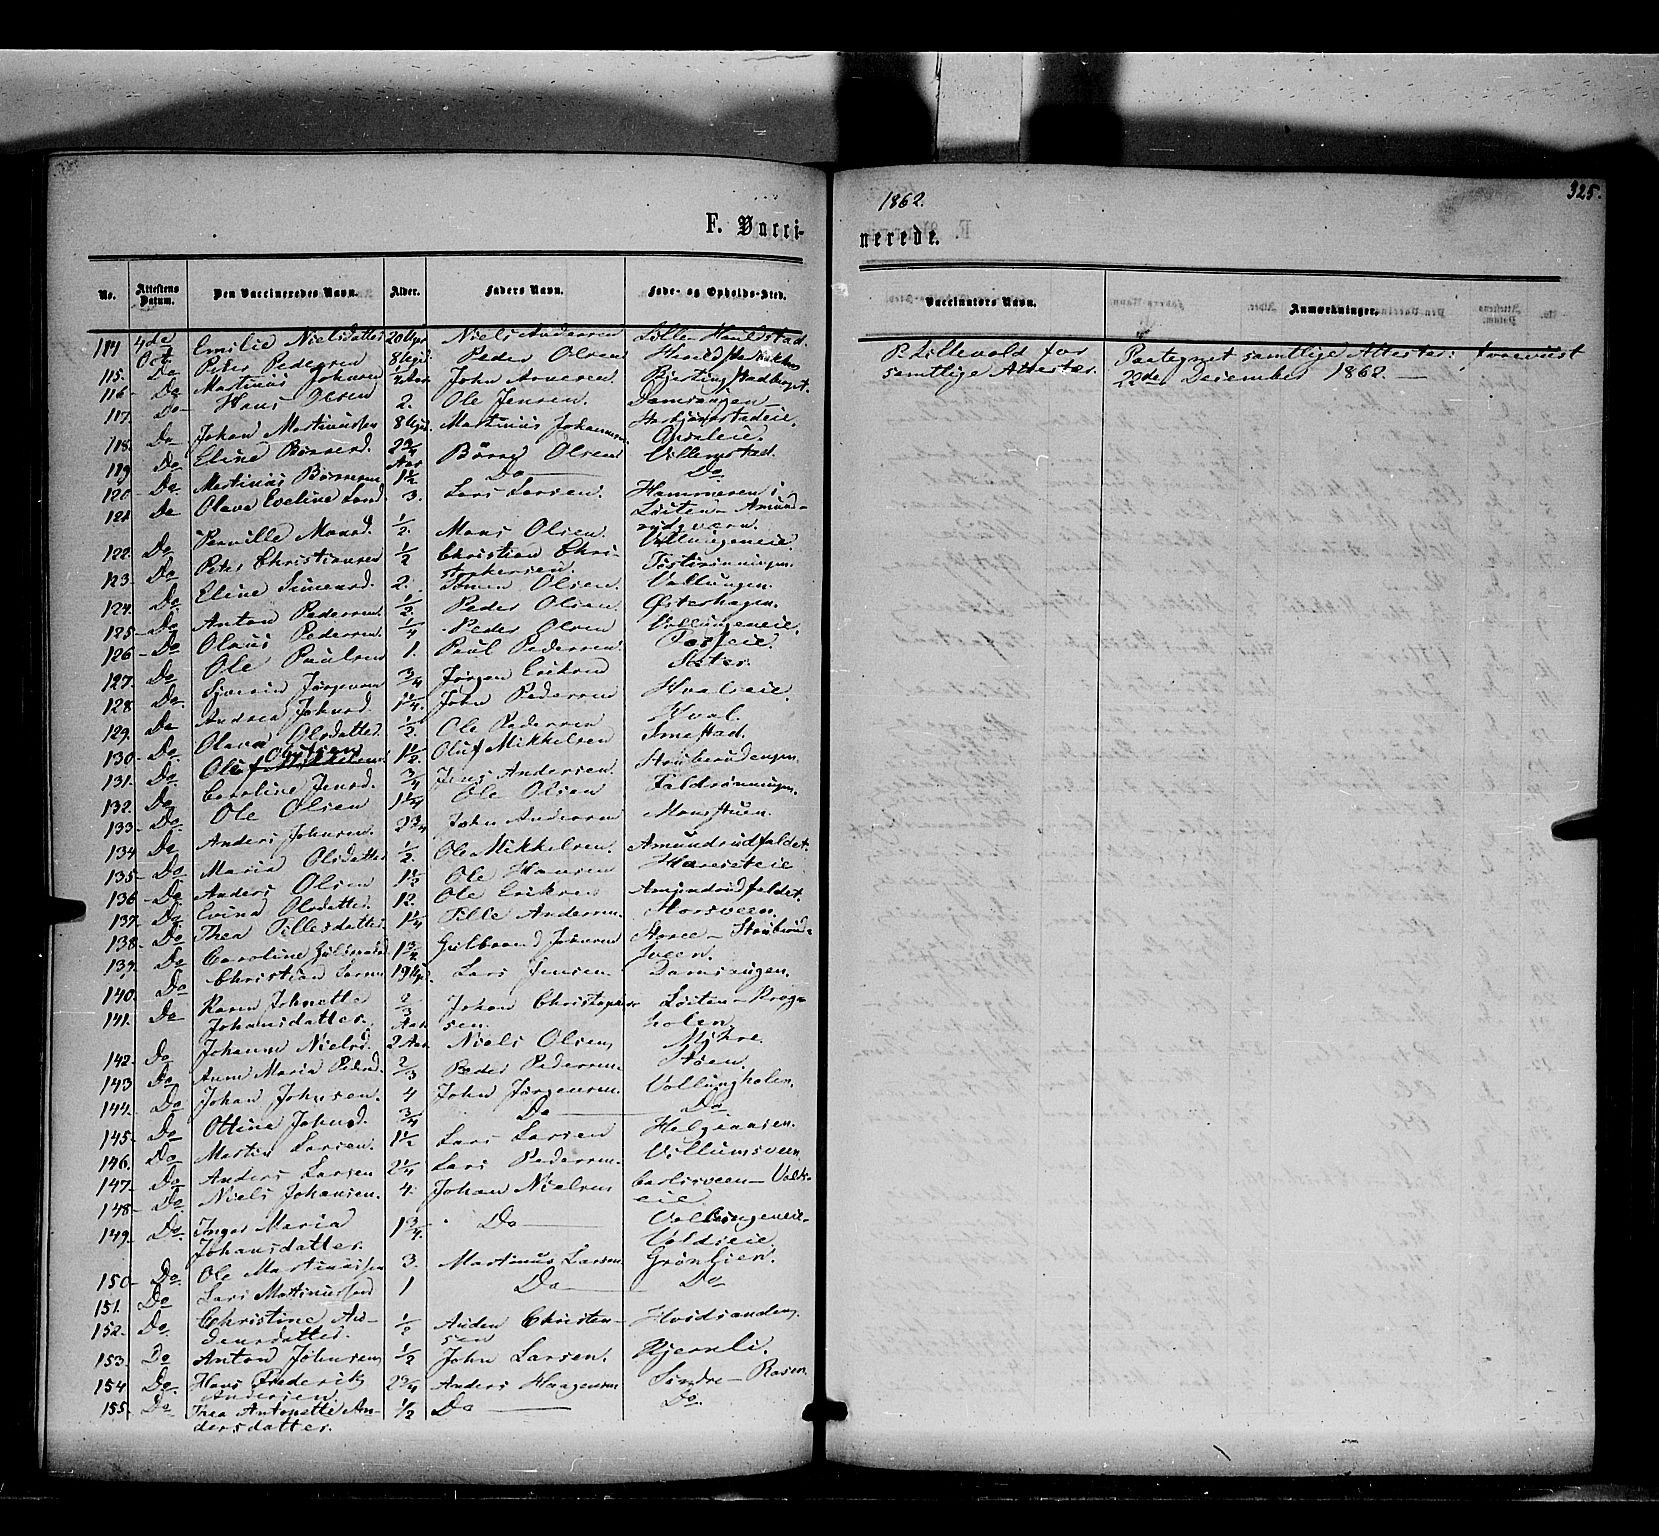 1862.
325.
F. Vacci-
nerede.
No. Attestens Datum. Den Vaccineredes Navn. Alder. Faders Navn. Føde- og Opholds-Sted.
Vaccinators Navn. Anmærkninger.
114 4de Oct Emilie Nielsdatter 20 Uger Niels Andersen Lille Haralstad.
115. Do Peter Pedersen 8 Uger Peder Olsen
116 - Do Martinus Johnsen Aar John Arnesen
117. Do - Hans Olsen 2. Ole Jensen. Damsangen
118. Do Johan Martinussen 8 Uger. Martinus Johannesen
119 Do Eline Børresd. 2 3/4 Aar Børre Olsen Villumstad.
120 - Do. Martinus Børresen 1 1/2 Do Do
121 Do Olava Eveline Larsd 3. Lars Larsen. Hammeren i
Løiten - Amund-
rudsveen.
122. Do Pernille Monsd. 1/2. Mons Olsen Vollungeneie.
123. Do Peter Christiansen 1/2 Christian Chri-
stophersen.
124. Do Eline Simensd. 2. Simen Olsen. Vollungen.
125 - Do Anton Pedersen 1/2. Peder Olsen. Østerhagen.
126 - Do Olaus Pedersen 1/4 Peder Olsen Vollungeneie.
127. Do Ole Paulsen 1. Paul Pedersen
128. Do Syverin Jørgensen 3/4 Jørgen Eriksen Sæter.
129. Do Andrea Johnsd. 1 1/4. John Pedersen Hvaleie.
130 - Do. Olava Olsdatter 1/2. Ole Pedersen Hval.
131. Do. Oluf Olufsen 1 1/2 Oluf Mikkelsen Smestad.
132. Do Caroline Jensd. 3/4 Jens Andersen. Strubrudengen.
133. Do. Ole Olsen 1 1/4 Ole Olsen Faldrønningen.
134 Do Anders Johnsen. 2 3/4 John Andersen Monsstuen.
135 - Do Maria Olsdatter 1/2 Ole Mikkelsen. Amundrudfaldet.
136 - Do Anders Olsen 1 1/2 Ole Hansen
137. Do Evina Olsdatter. 12. Ole Eriksen Amundrudfaldet.
138 - Do Thea Tillesdatter 1 1/4 Tille Andersen. Storsveen.
139. Do Caroline Gulbrandsd. 1 3/4 Gulbrand Johnsen Storee - Strubrud-
sveen.
140. Do Christian Larsen 19 Uger. Lars Jensen. Damsangen.
141. Do Karen Johnette 2/3 Aar Johan Christopher- Løiten - Kroge-
Johansdatter. sen. holen.
142. Do Johanne Nielsd. 2 Aar. Niels Olsen Myhre.
143 Do Anne Maria Pedersd. 2/3 Peder Pedersen Støen.
144. Do Johan Johnsen. 4 John Jørgensen Vollungholen.
145 - Do Ottine Johnsd. 3/4 Do Do
146. Do. Martin Larsen. 1 1/2 Lars Larsen Helgeaasen.
147 - Do Anders Larsen 2 1/4 Lars Pedersen. Villumsveen.
148 - Do. Niels Johansen. 4. Johan Nielsen Carlsveen - Volds-
eie.
149. Do. Inger Maria 1 3/4. Do Vollungeneie.
Johansdatter. Voldseie.
150 - Do. Ole Martinussen 3. Martinus Larsen Grønlien.
151. Do Lars Martinussen 1 Do Do
152. Do. Christine An- 1/2 Anders Christen- Hvidsanden.
dersdatter. sen
153. Do Anton Johnsen 1/2 John Larsen. Kjernli.
154 Do. Hans Frederik 2 3/4 Anders Haagensen Søndre - Rosen
Andersen
155. Do Thea Antonette An- 1/2 Do Do.
dersdatter.
P. Lillevold for
samtlige Attester.
Paategnet samtlige Attester: forevist
22de December 1862. -